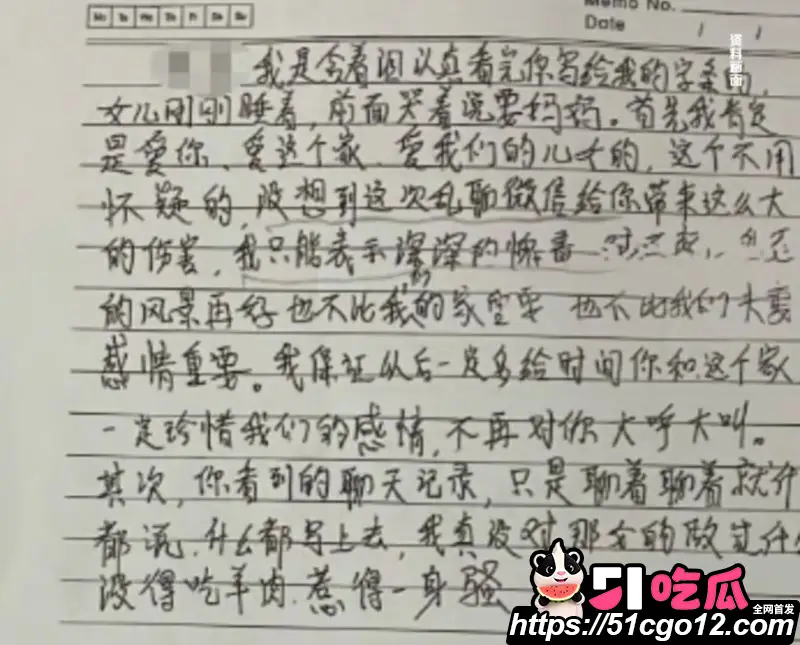 Mo Tu We Th Fr Sa Su
Memo No.
Date / /
资料画面
我是含着泪认真看完你写给我的字条的,
女儿刚刚睡着,前面哭着说要妈妈。首先我肯定
是爱你、爱这个家、爱我们的儿女的,这个不用
怀疑的,没想到这次乱聊微信给你带来这么大
的伤害,我只能表示深深的
的风景再好也不比我的家重要 也不比我们夫妻
感情重要。我保证从后一定多给时间你和这个家
一定珍惜我们的感情,不再对你大呼大叫。
其次,你看到的聊天记录,只是聊着聊着就什
都说,什么都写上去,我真没对那女的做过什么
没得吃羊肉.惹得一身骚
51吃瓜
全网首发
https://51cgo12.com